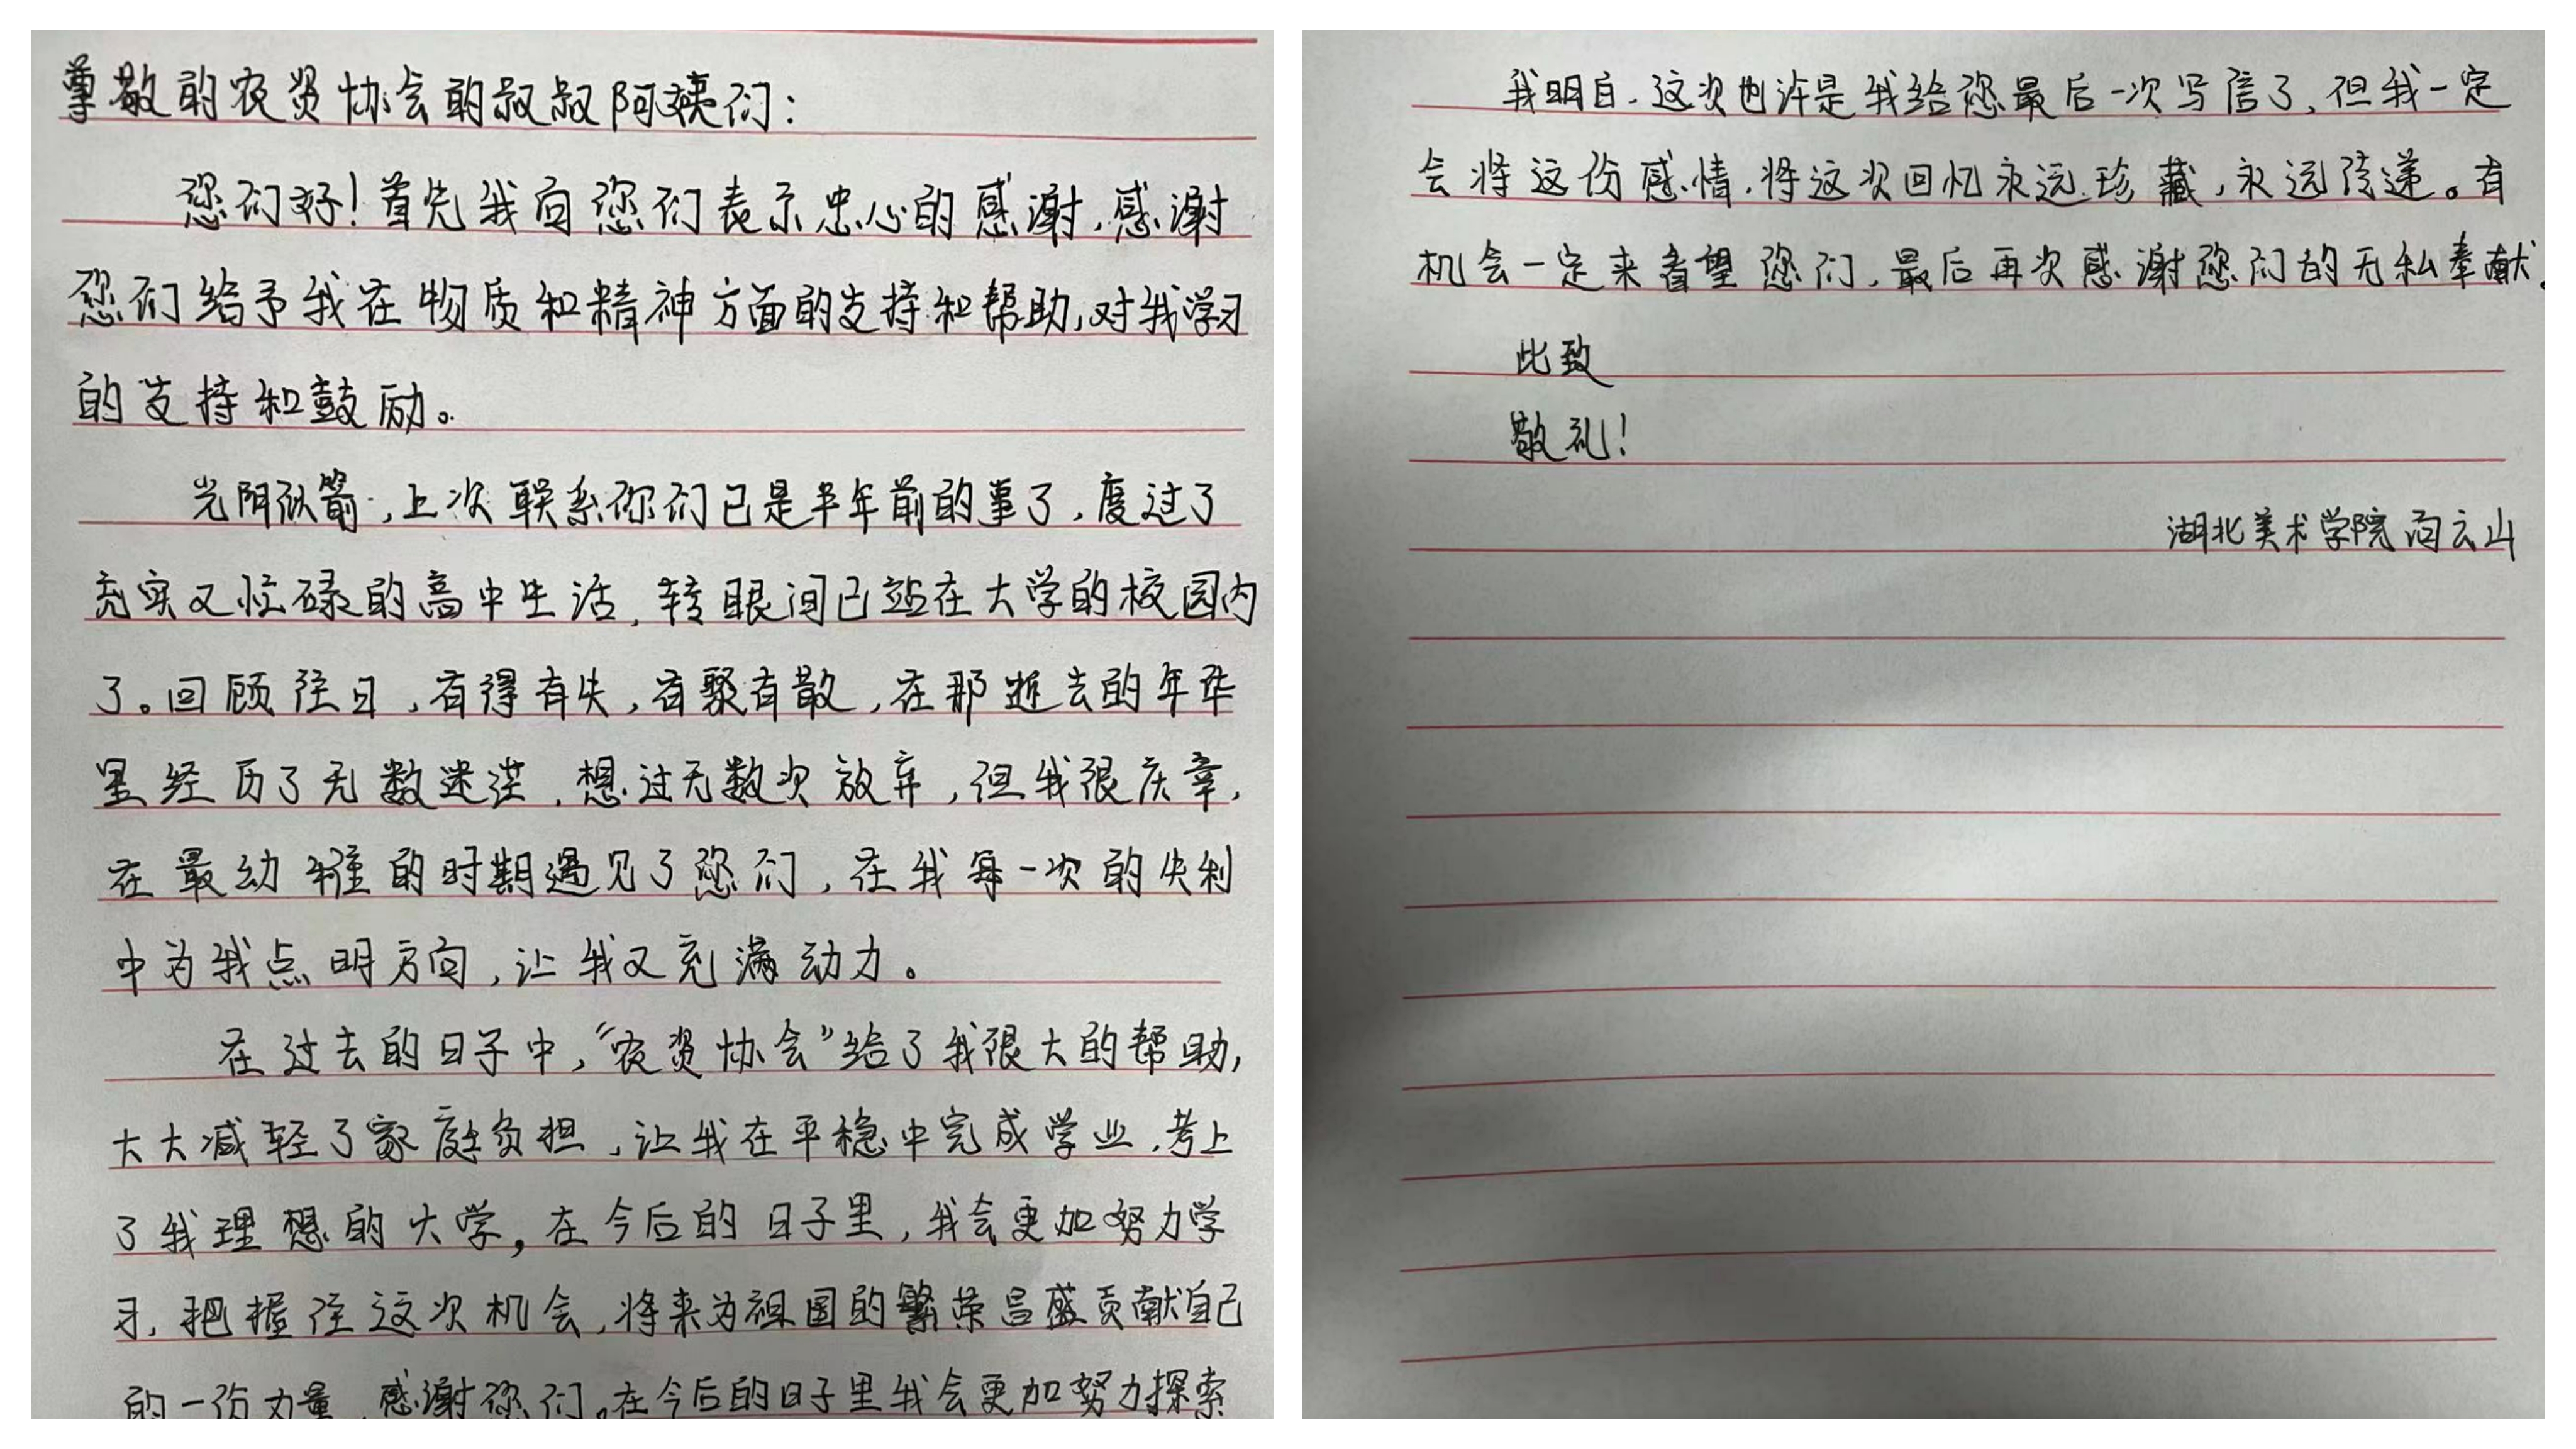 尊敬的农资协会的叔叔阿姨们：
您们好！首先我向您们表示忠心的感谢，感谢
您们给予我在物质和精神方面的支持和帮助，对我学习
的支持和鼓励。
光阴似箭，上次联系你们已是半年前的事了，度过了
充实又忙碌的高中生活，转眼间已站在大学的校园内
了。回顾往日，有得有失，有聚有散，在那逝去的年华
里经历了无数迷茫，想过无数次放弃，但我很庆幸，
在最幼稚的时期遇见了您们，在我每一次的失利
中为我点明方向，让我又充满动力。
在过去的日子中，“农资协会”给了我很大的帮助，
大大减轻了家庭负担，让我在平稳中完成学业，考上
了我理想的大学，在今后的日子里，我会更加努力学
习，把握住这次机会，将来为祖国的繁荣昌盛贡献自己
的一份力量，感谢你们。在今后的日子里我会更加努力探索
我明白，这次也许是我给您最后一次写信了，但我一定
会将这份感情，将这次回忆永远珍藏，永远传递。有
机会一定来看望您们，最后再次感谢您们的无私奉献。
此致
敬礼！
湖北美术学院 向云山